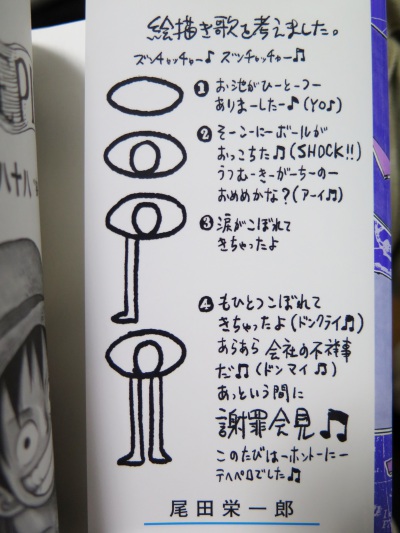 絵描き歌を考えました。
ズンチャッチャー♪ ズンチャッチャー♫
❶ お池がひーとーつー
ありましたー♪(YO♪)
❷ そーこーにーボールが
おっこちた♫(SHOCK!!)
うつむーきーがーちーのー
おめめかな?(アーイ♫)
❸ 涙がこぼれて
きちゃったよ
❹ もひとつこぼれて
きちゃったよ(ドンクライ♫)
あらあら 会社の不祥事
だ♫(ドンマイ♫)
あっという間に
謝罪会見♫
このたびはーホントーにー
テヘペロでした♫
尾田栄一郎
八十八